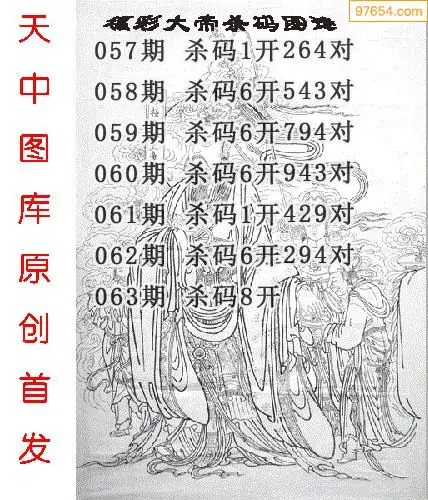 97654.com
福彩大帝杀码图迷
057期 杀码1开264对
058期 杀码6开543对
059期 杀码6开794对
060期 杀码6开943对
061期 杀码1开429对
062期 杀码6开294对
063期 杀码8开
天中图库原创首发